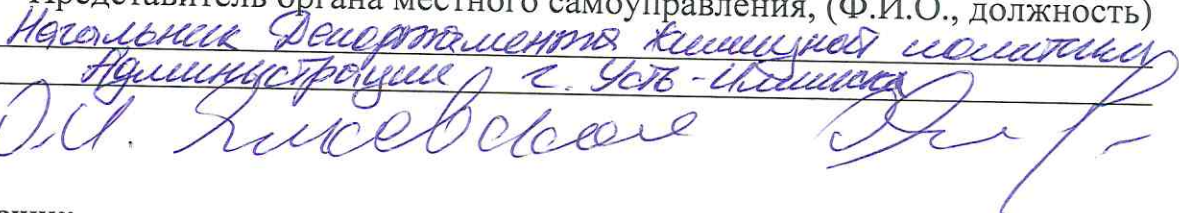 Представитель органа местного самоуправления, (Ф.И.О., должность)
Начальник Департамента жилищной политики
Администрации г. Усть-Илимска